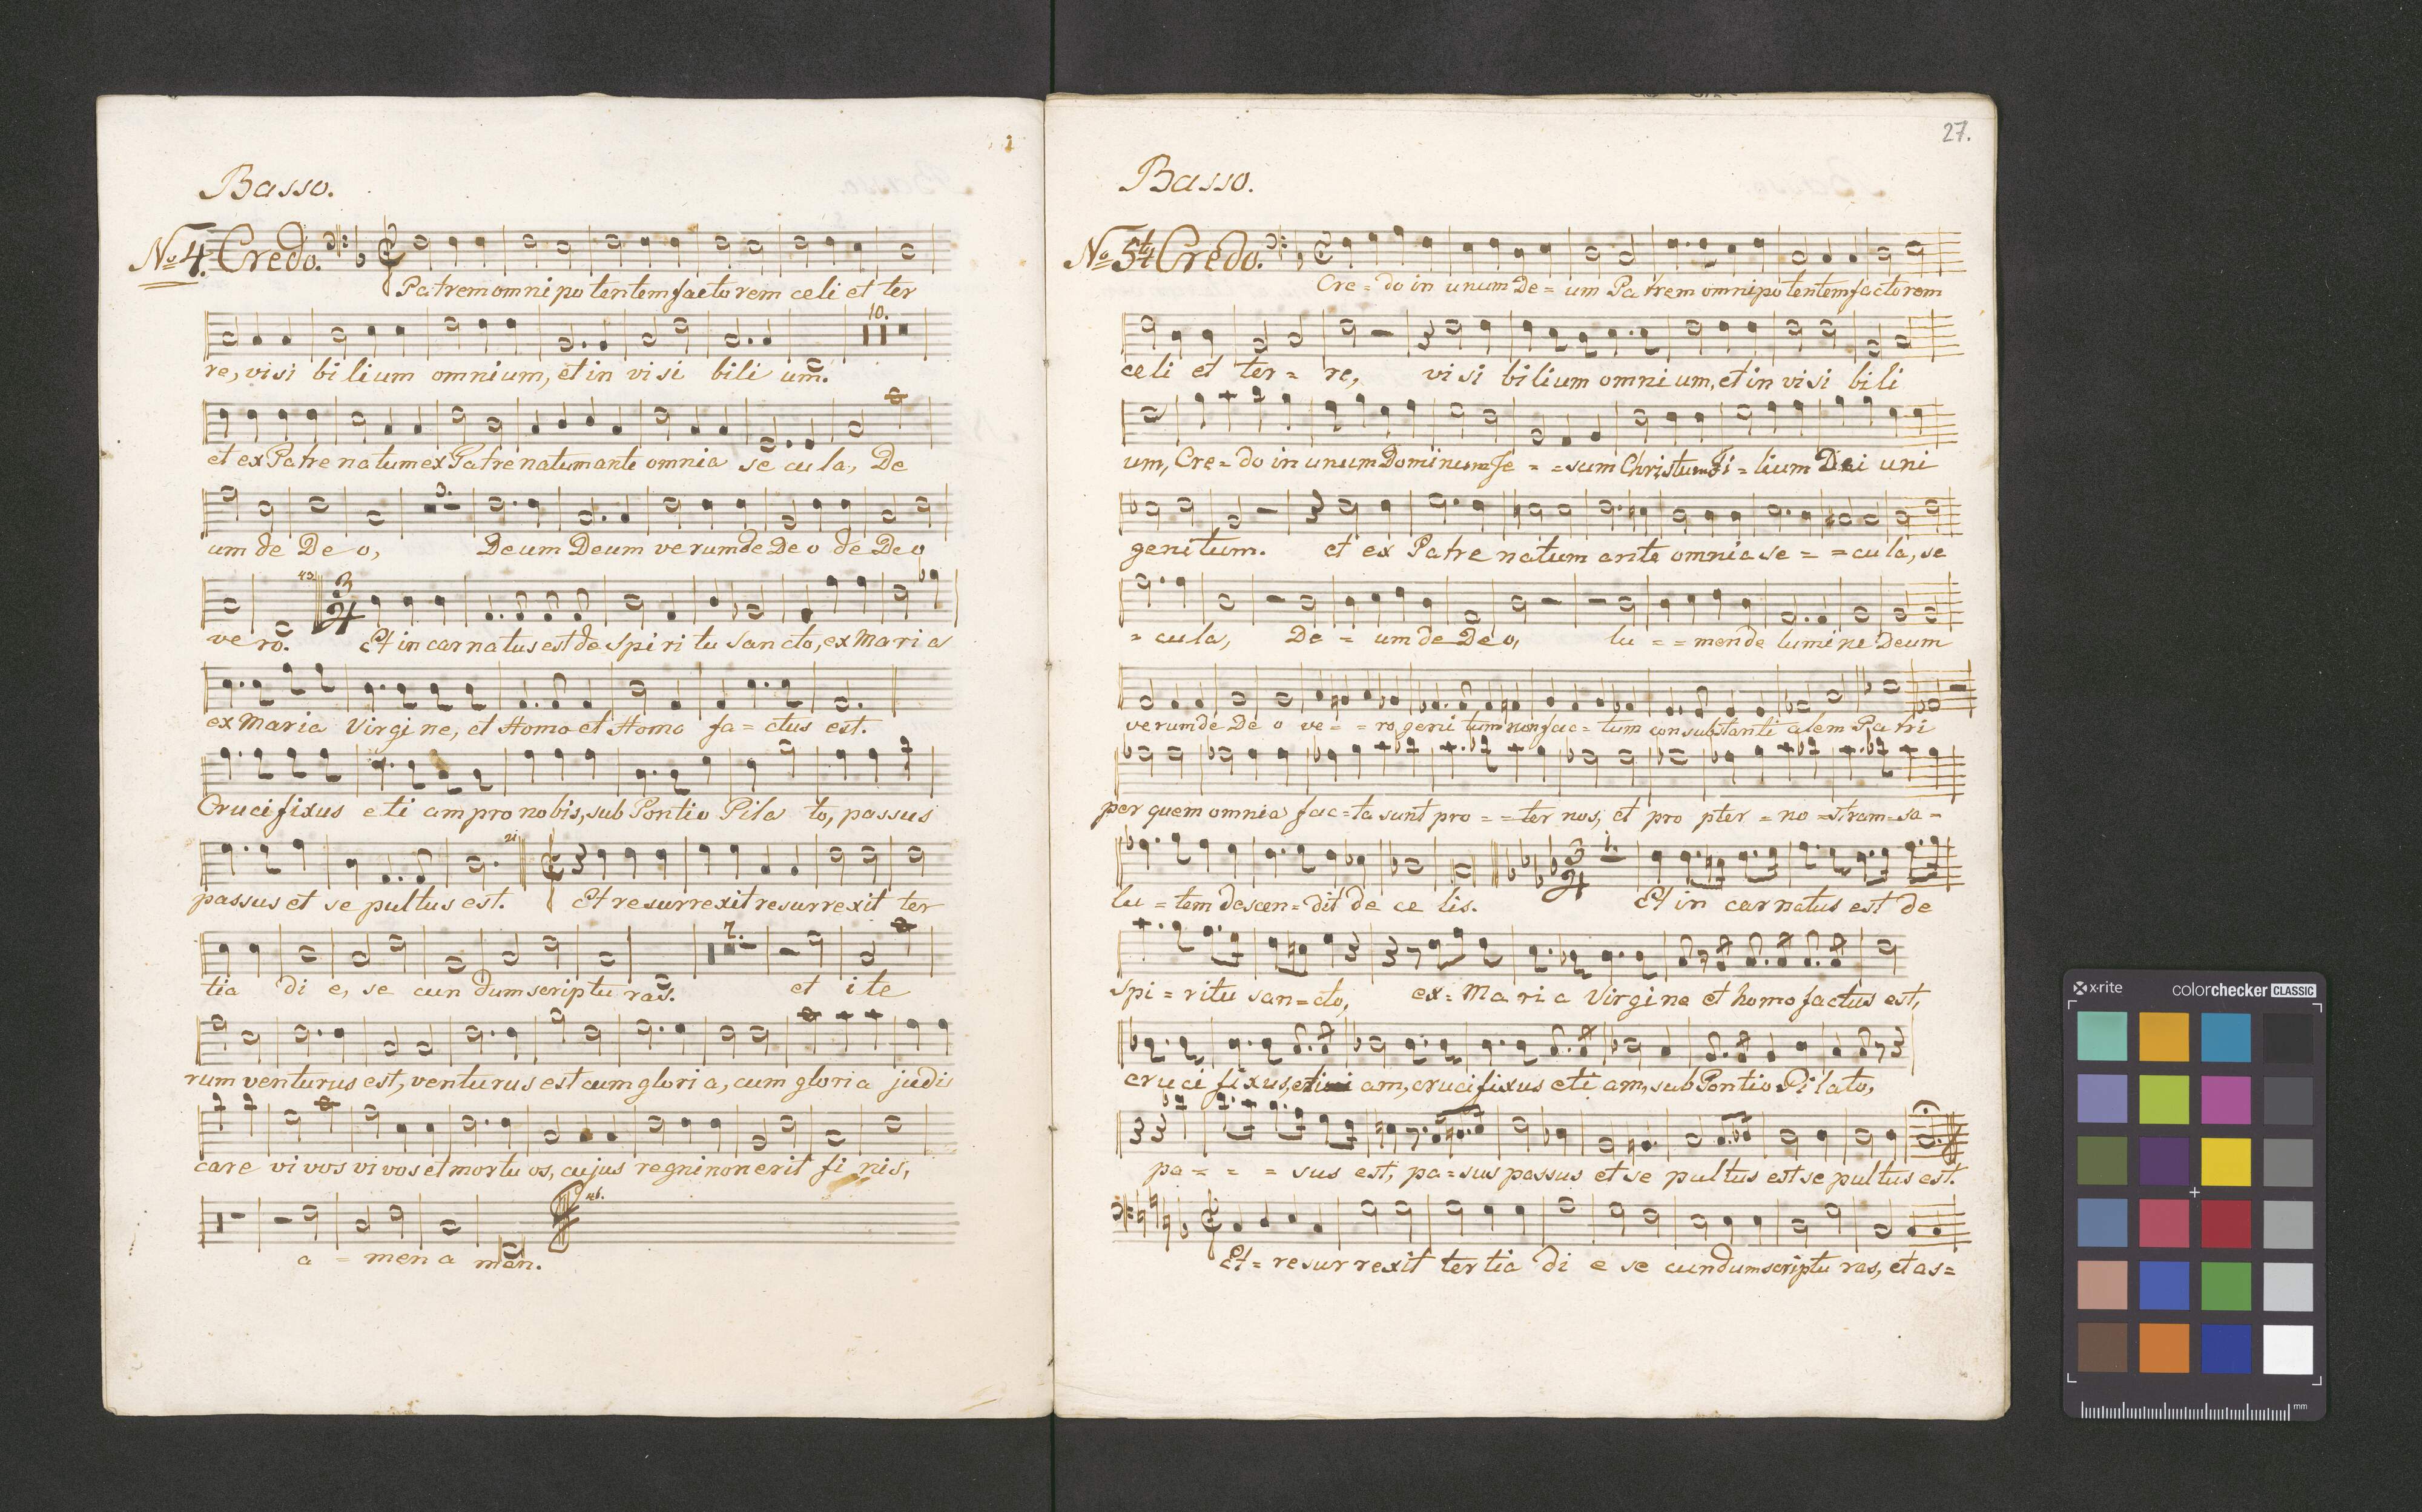 Basso.
No 4. Credo.
Patrem omni po tentem factorem celi et ter
10.
re, visi bilium omnium, et in visi bili um.
et ex Patre natum ex Patre natum ante omnia se cu la, De
3.
um de De o, Deum Deum verum de De o de Deo
43 3 4
ve ro. Et in carnatus est de spi ri tu sancto, ex Mari a
ex Maria Virgi ne, et Homo et Homo fa = ctus est.
Crucifixus eti am pro nobis, sub Pontio Pila to, passus
21
passus et se pultus est. Et resurrexit resurrexit ter
7.
tia di e, se cun dum scriptu ras. et ite
rum venturus est, venturus est cum glori a, cum gloria judi
care vi vos vi vos et mortu os, cujus regni non erit fi nis,
a = men a men.
27.
Basso.
No 5to Credo.
Cre = do in unum De = um Patrem omnipotentem factorem
celi et ter = re, visi bilium omnium, et in visi bili
um, Cre = do in unum Dominum Je = = sum Christum Fi = lium Dei uni
genitum. et ex Patre natum ante omnia se = = cula, se
= cula, De = um de De o, lu = = men de lumine Deum
verum de De o ve = = ro geni tum non fac = tum consubstanti alem Patri
per quem omnia fac = ta sunt pro = = ter nos, et pro pter = no = stram = sa =
3 4 1.
lu = tem descen = dit de ce lis. Et in carnatus est de
spi = ritu san = cto, ex = Ma ri a Virgine et homo factus est,
cruci fixus, eti am, crucifixus eti am, sub Pontio Pilato,
pa = = = sus est, pa = sus passus et se pultus est se pultus est.
Et = resur rexit tertia di e se cundum scriptu ras, et as =
x-rite colorchecker CLASSIC
mm